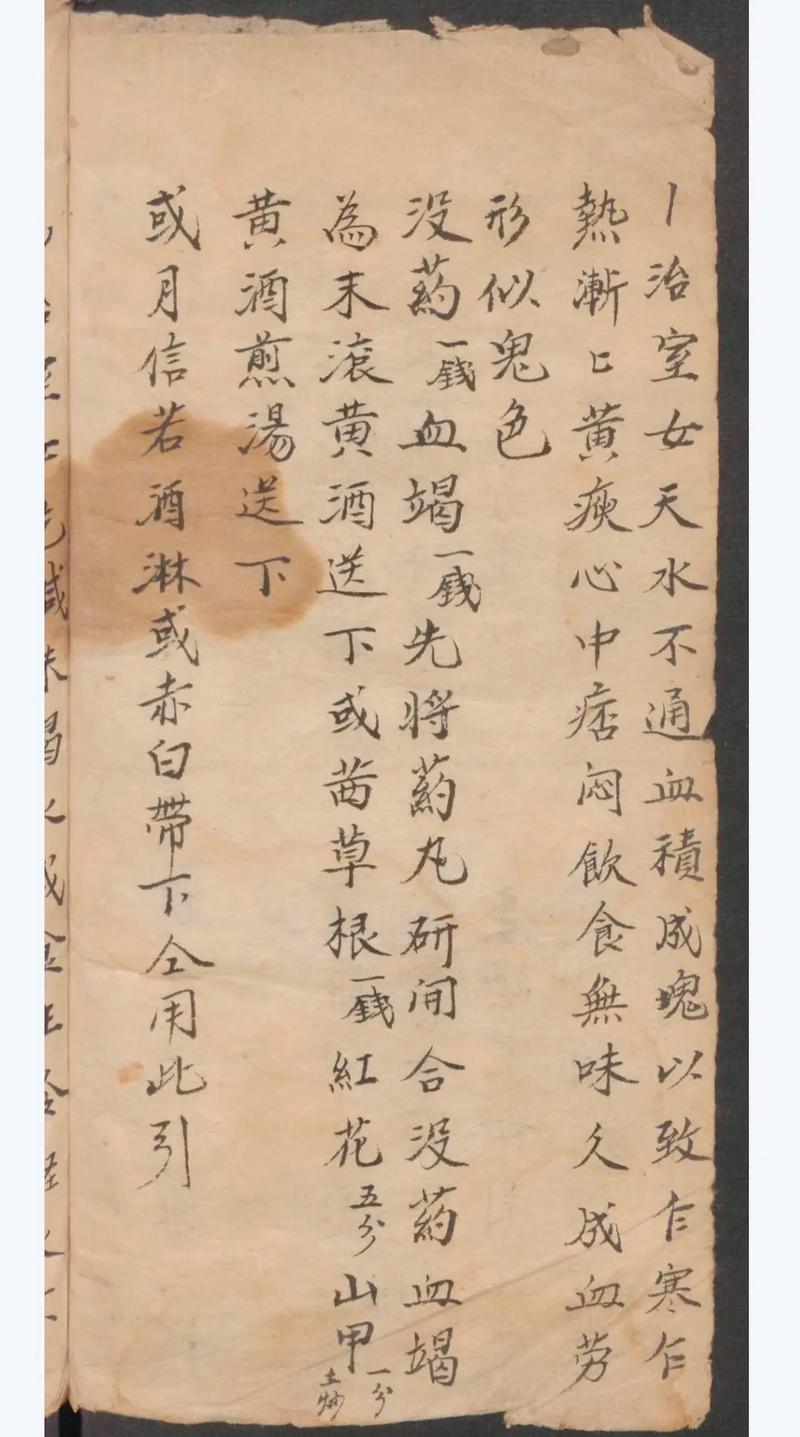 丨治室女天水不通血積成塊以致乍寒乍
熱漸匕黄瘐心中痞悶飲食無味久成血劳
形似鬼色
没药一錢血竭一錢先将药丸研開合没药血竭
為末滚黄酒送下或茜草根一錢紅花五分山甲一分土炒
黄酒煎湯送下
或月信若酒淋或赤白帶下仝用此引